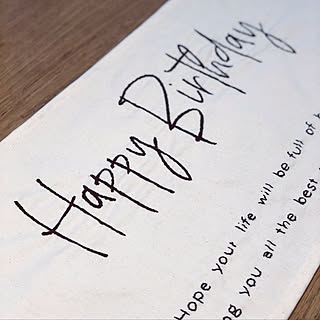 Happy Birthday
Hope your life will be full of
you all the best